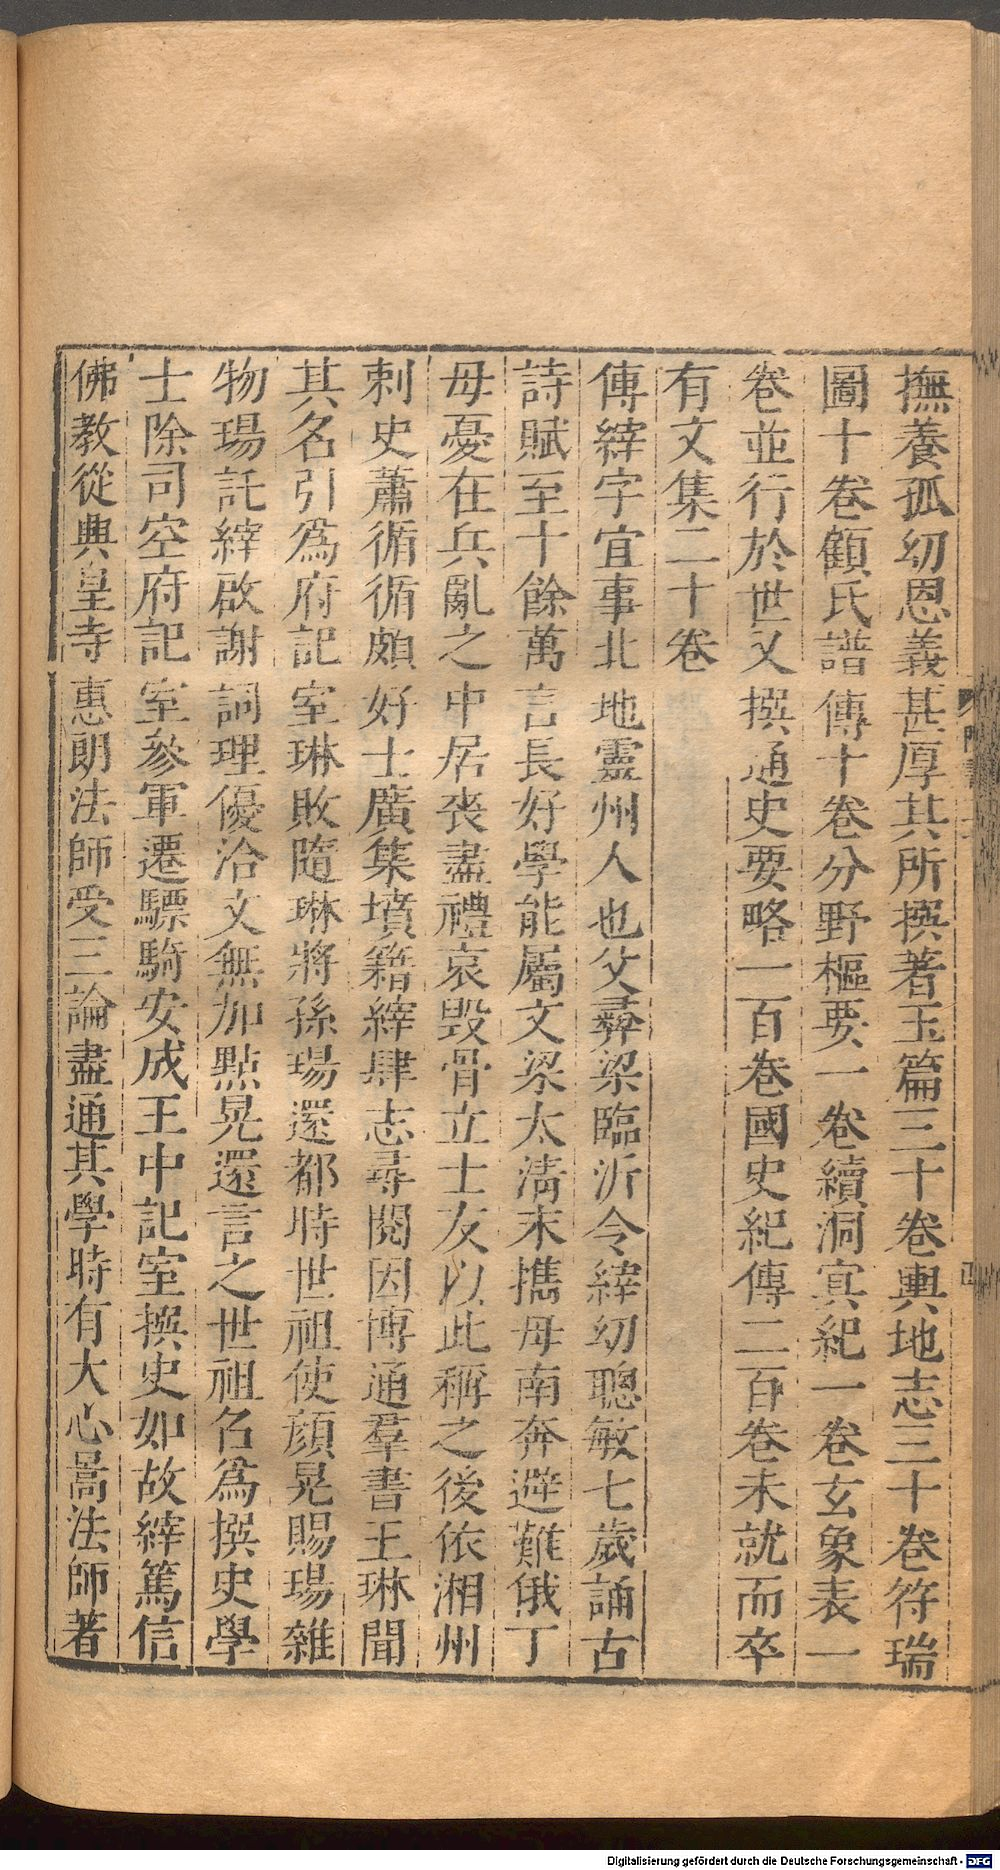 撫養孤幼恩義甚厚其所撰著玉篇三十卷輿地志三十卷符瑞
圖十卷顧氏譜傳十卷分野樞要一卷續洞冥紀一卷玄象表一
卷並行於世又撰通史要略一百卷國史紀傳二百卷未就而卒
有文集二十卷
傳縡字宜事北地靈州人也父彛梁臨沂令縡幼聰敏七歲誦古
詩賦至十餘萬言長好學能屬文梁太淸末攜母南奔避難俄丁
母憂在兵亂之中居丧盡禮哀毀骨立士友以此稱之後依湘州
刺史蕭循循頗好士廣集墳籍縡肆志尋閱因博通羣書王琳聞
其名引爲府記室琳敗隨琳將孫瑒還都時世祖使顔晃賜瑒雜
物瑒託縡啟謝詞理優洽文無加點晃還言之世祖召爲撰史學
士除司空府記室參軍遷驃騎安成王中記室撰史如故縡篤信
佛教從興皇寺惠朗法師受三論盡通其學時有大心暠法師著
Digitalisierung gefördert durch die Deutsche Forschungsgemeinschaft - DFG